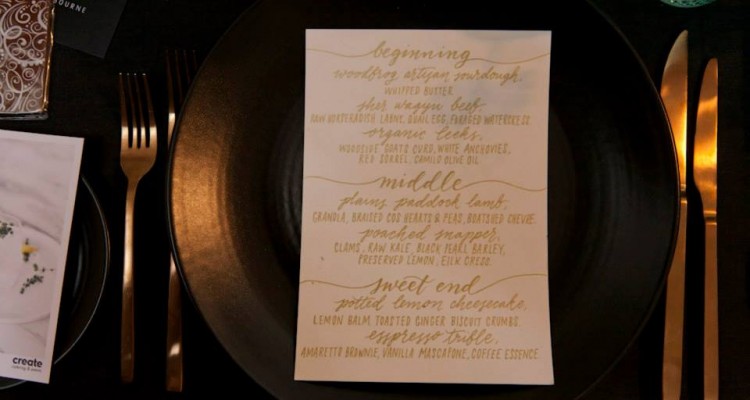 BOURNE
beginning
woodfrog artisan sourdough,
WHIPPED BUTTER
sher wagyu beef,
RAW HORSERADISH, LABNE, QUAIL EGG, FORAGED WATERCRESS
organic leeks,
WOODSIDE GOATS CURD, WHITE ANCHOVIES,
RED SORREL, CAMILO OLIVE OIL
middle
plains paddock lamb,
GRANOLA, BRAISED COS HEARTS & PEAS, BOATSHED CHEVRE.
poached snapper,
CLAMS, RAW KALE, BLACK PEARL BARLEY,
PRESERVED LEMON, ELK CRESS
sweet end
potted lemon cheesecake,
LEMON BALM, TOASTED GINGER BISCUIT CRUMBS.
espresso trifle,
AMARETTO BROWNIE, VANILLA MASCAPONE, COFFEE ESSENCE
create